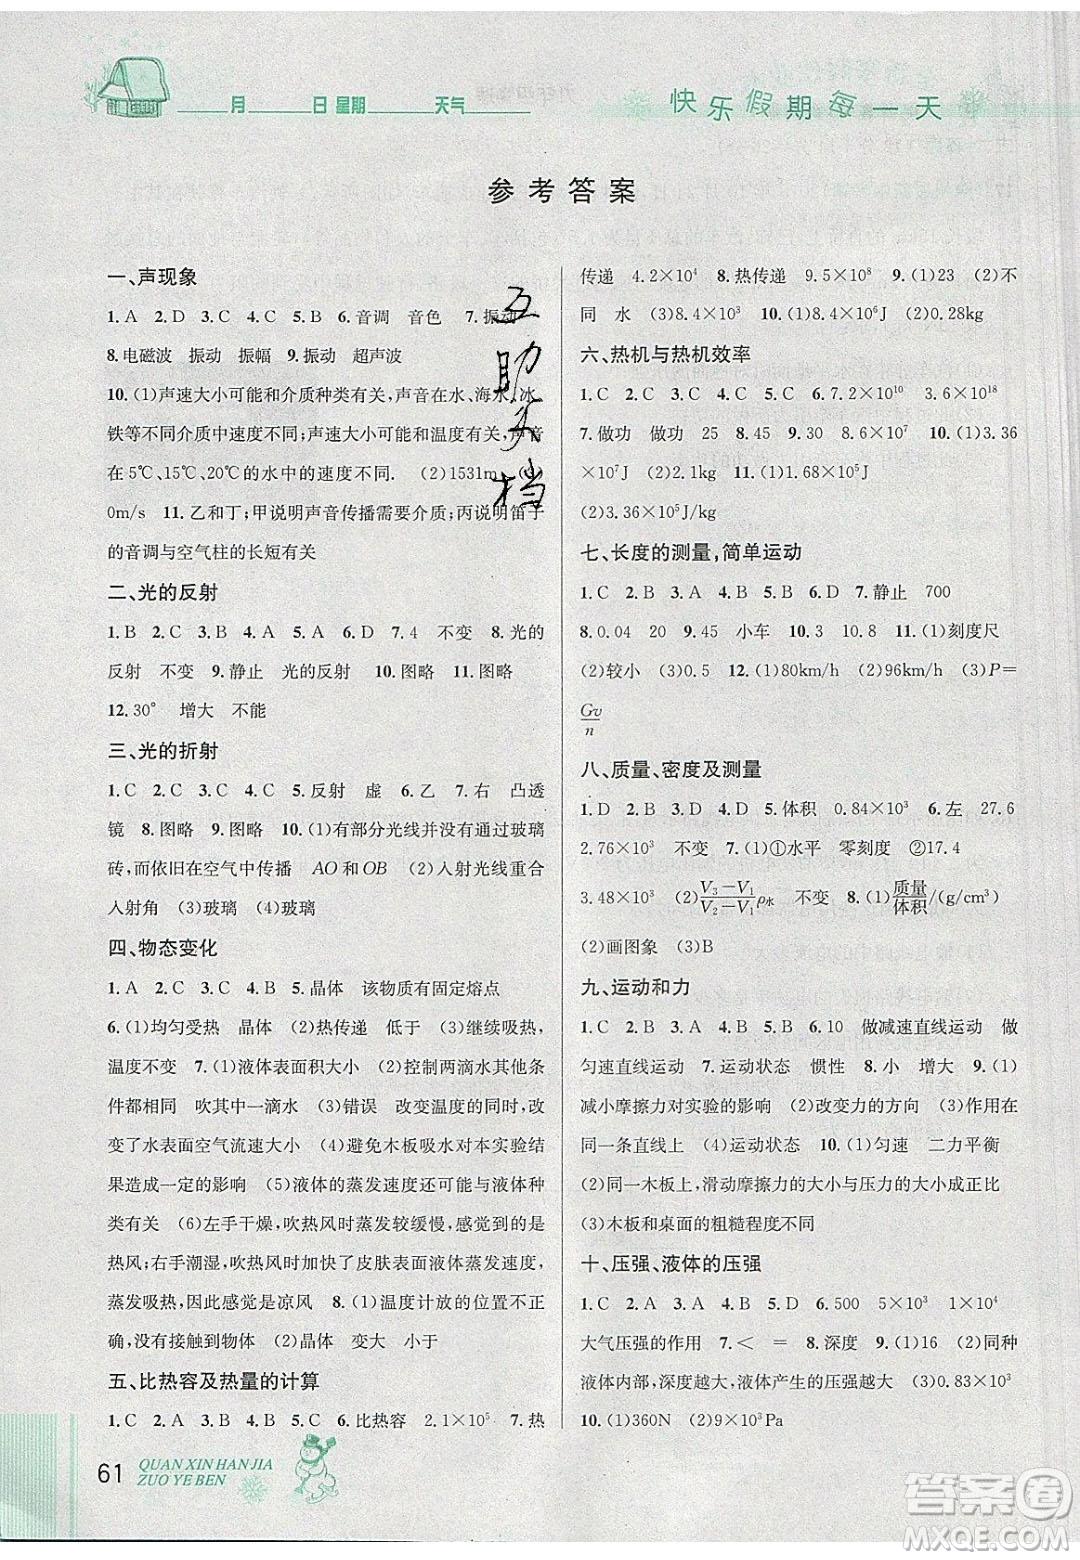 月 日 星期 天气
快乐假期每一天
参考答案
一、声现象
1.A 2.D 3.C 4.C 5.B 6.音调 音色 7.振动
8.电磁波 振动 振幅 9.振动 超声波
10.(1)声速大小可能和介质种类有关,声音在水、海水、冰、
铁等不同介质中速度不同;声速大小可能和温度有关,声音
在5℃、15℃、20℃的水中的速度不同. (2)1531m (3)
0m/s 11.乙和丁;甲说明声音传播需要介质;丙说明笛子
的音调与空气柱的长短有关
二、光的反射
1.B 2.C 3.B 4.C 5.B 6.D 7.4 不变 8.光的
反射 不变 9.静止 光的反射 10.图略 11.图略
12.30° 增大 不能
三、光的折射
1.C 2.C 3.A 4.C 5.反射 虚 6.乙 7.右 凸透
镜 8.图略 9.图略 10.(1)有部分光线并没有通过玻璃
砖,而依旧在空气中传播 AO和OB (2)入射光线重合
入射角 (3)玻璃 (4)玻璃
四、物态变化
1.A 2.A 3.B 4.D 5.晶体 该物质有固定熔点
6.(1)均匀受热 晶体 (2)热传递 低于 (3)继续吸热,
温度不变 7.(1)液体表面积大小 (2)控制两滴水其他条
件都相同 吹其中一滴水 (3)错误 改变温度的同时,改
变了水表面空气流速大小 (4)避免木板吸水对本实验结
果造成一定的影响 (5)液体的蒸发速度还可能与液体种
类有关 (6)左手干燥,吹热风时蒸发较缓慢,感觉到的是
热风;右手潮湿,吹热风时加快了皮肤表面液体蒸发速度,
蒸发吸热,因此感觉是凉风 8.(1)温度计放的位置不正
确,没有接触到物体 (2)晶体 变大 小于
五、比热容及热量的计算
1.C 2.A 3.B 4.C 5.C 6.比热容 2.1×10⁵ 7.热
传递 4.2×10⁴ 8.热传递 9.5×10⁸ 9.(1)23 (2)不
同 水 (3)8.4×10³ 10.(1)8.4×10⁶J (2)0.28kg
六、热机与热机效率
1.C 2.C 3.D 4.B 5.C 6.7.2×10¹⁰ 3.6×10¹⁸
7.做功 做功 25 8.2400 30 9.30 8.6×10⁴ 10.(1)3.36
×10⁷J (2)2.1kg 11.(1)1.68×10⁵J
(2)3.36×10⁵J/kg
七、长度的测量,简单运动
1.C 2.B 3.A 4.B 5.B 6.D 7.静止 700
8.0.04 20 9.45 小车 10.3 10.8 11.(1)刻度尺
(2)较小 (3)0.5 12.(1)80km/h (2)96km/h (3)P=
Gv/n
八、质量、密度及测量
1.D 2.B 3.A 4.D 5.体积 0.84×10³ 6.左 27.6
2.76×10³ 不变 7.(1)①水平 零刻度 ②17.4
3.48×10³ (2)(V₃−V₁)/(V₂−V₁)ρ水 不变 8.(1)质量/体积/(g/cm³)
(2)画图象 (3)B
九、运动和力
1.C 2.B 3.C 4.D 5.B 6.10 做减速直线运动 做
匀速直线运动 7.运动状态 惯性 8.小 增大 9.(1)
减小摩擦力对实验的影响 (2)改变力的方向 (3)作用在
同一条直线上 (4)运动状态 10.(1)匀速 二力平衡
(2)同一木板上,滑动摩擦力的大小与压力的大小成正比
(3)木板和桌面的粗糙程度不同
十、压强、液体的压强
1.C 2.B 3.A 4.B 5.D 6.500 5×10³ 1×10⁴
大气压强的作用 7.< = 8.深度 9.(1)16 (2)同种
液体内部,深度越大,液体产生的压强越大 (3)0.83×10³
10.(1)360N (2)9×10³Pa
互助文档
61
QUAN XIN HAN JIA
ZUO YE BEN
答案圈
MXQE.COM